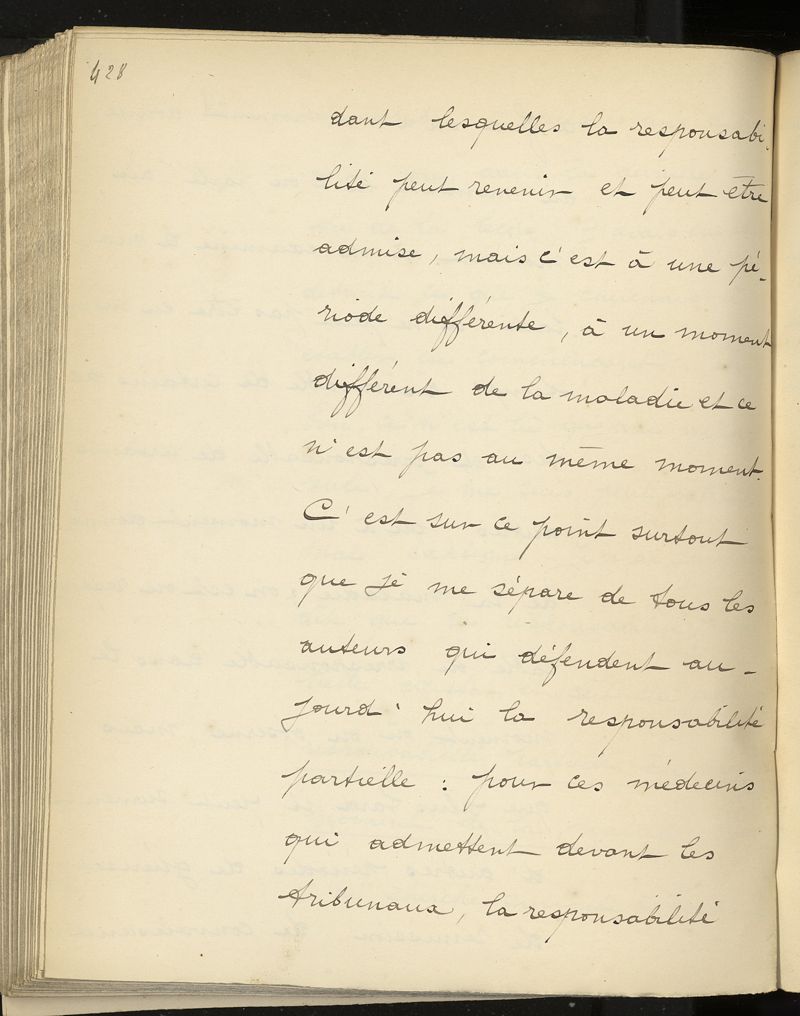 428
dant lesquelles la responsabi-
lité peut revenir et peut être
admise, mais c'est à une pé-
riode différente, à un moment
différent de la maladie et ce
n'est pas au même moment.
C'est sur ce point surtout
que je me sépare de tous les
auteurs qui défendent au-
jourd'hui la responsabilité
partielle : pour ces médecins
qui admettent devant les
tribunaux, la responsabilité